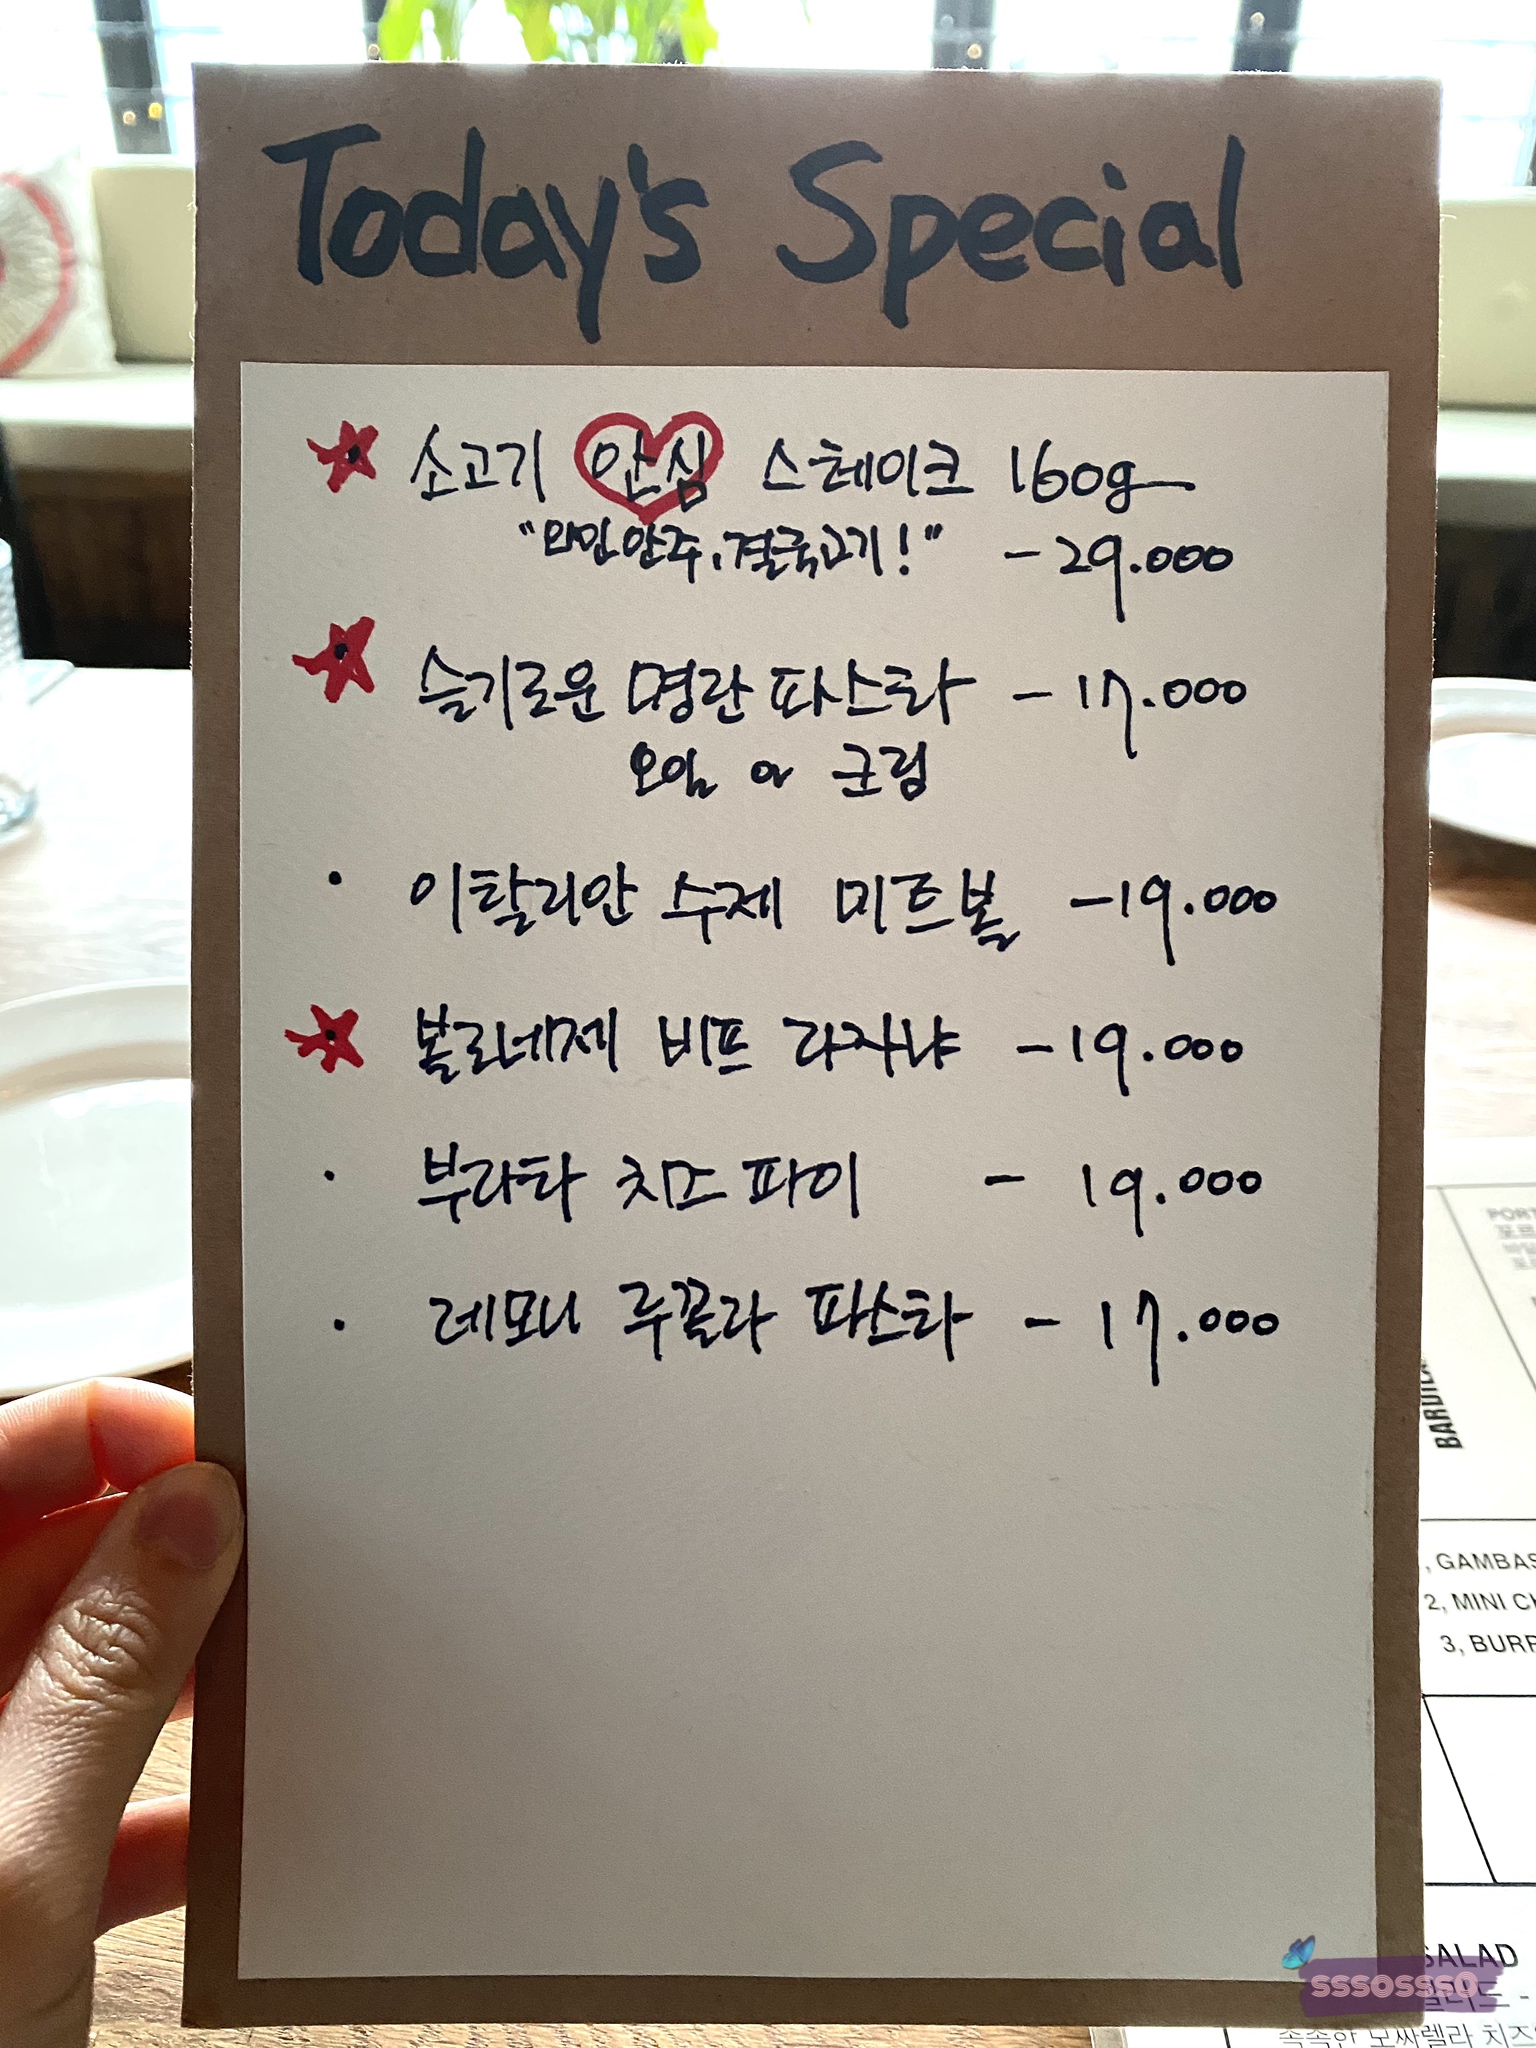 Today's Special
소고기 안심 스테이크 160g
"와인안주, 결국고기!" - 29.000
슬기로운 명란 파스타 - 17.000
오일 or 크림
· 이탈리안 수제 미트볼 - 19.000
볼로네제 비프 라자냐 - 19.000
· 부라타 치즈 파이 - 19.000
· 레모니 루꼴라 파스타 - 17.000
PORT
BARDIL
, GAMBAS
2, MINI CH
3, BURR
SALAD
샐러드 -
촉촉한 모짜렐라 치즈
sssossso